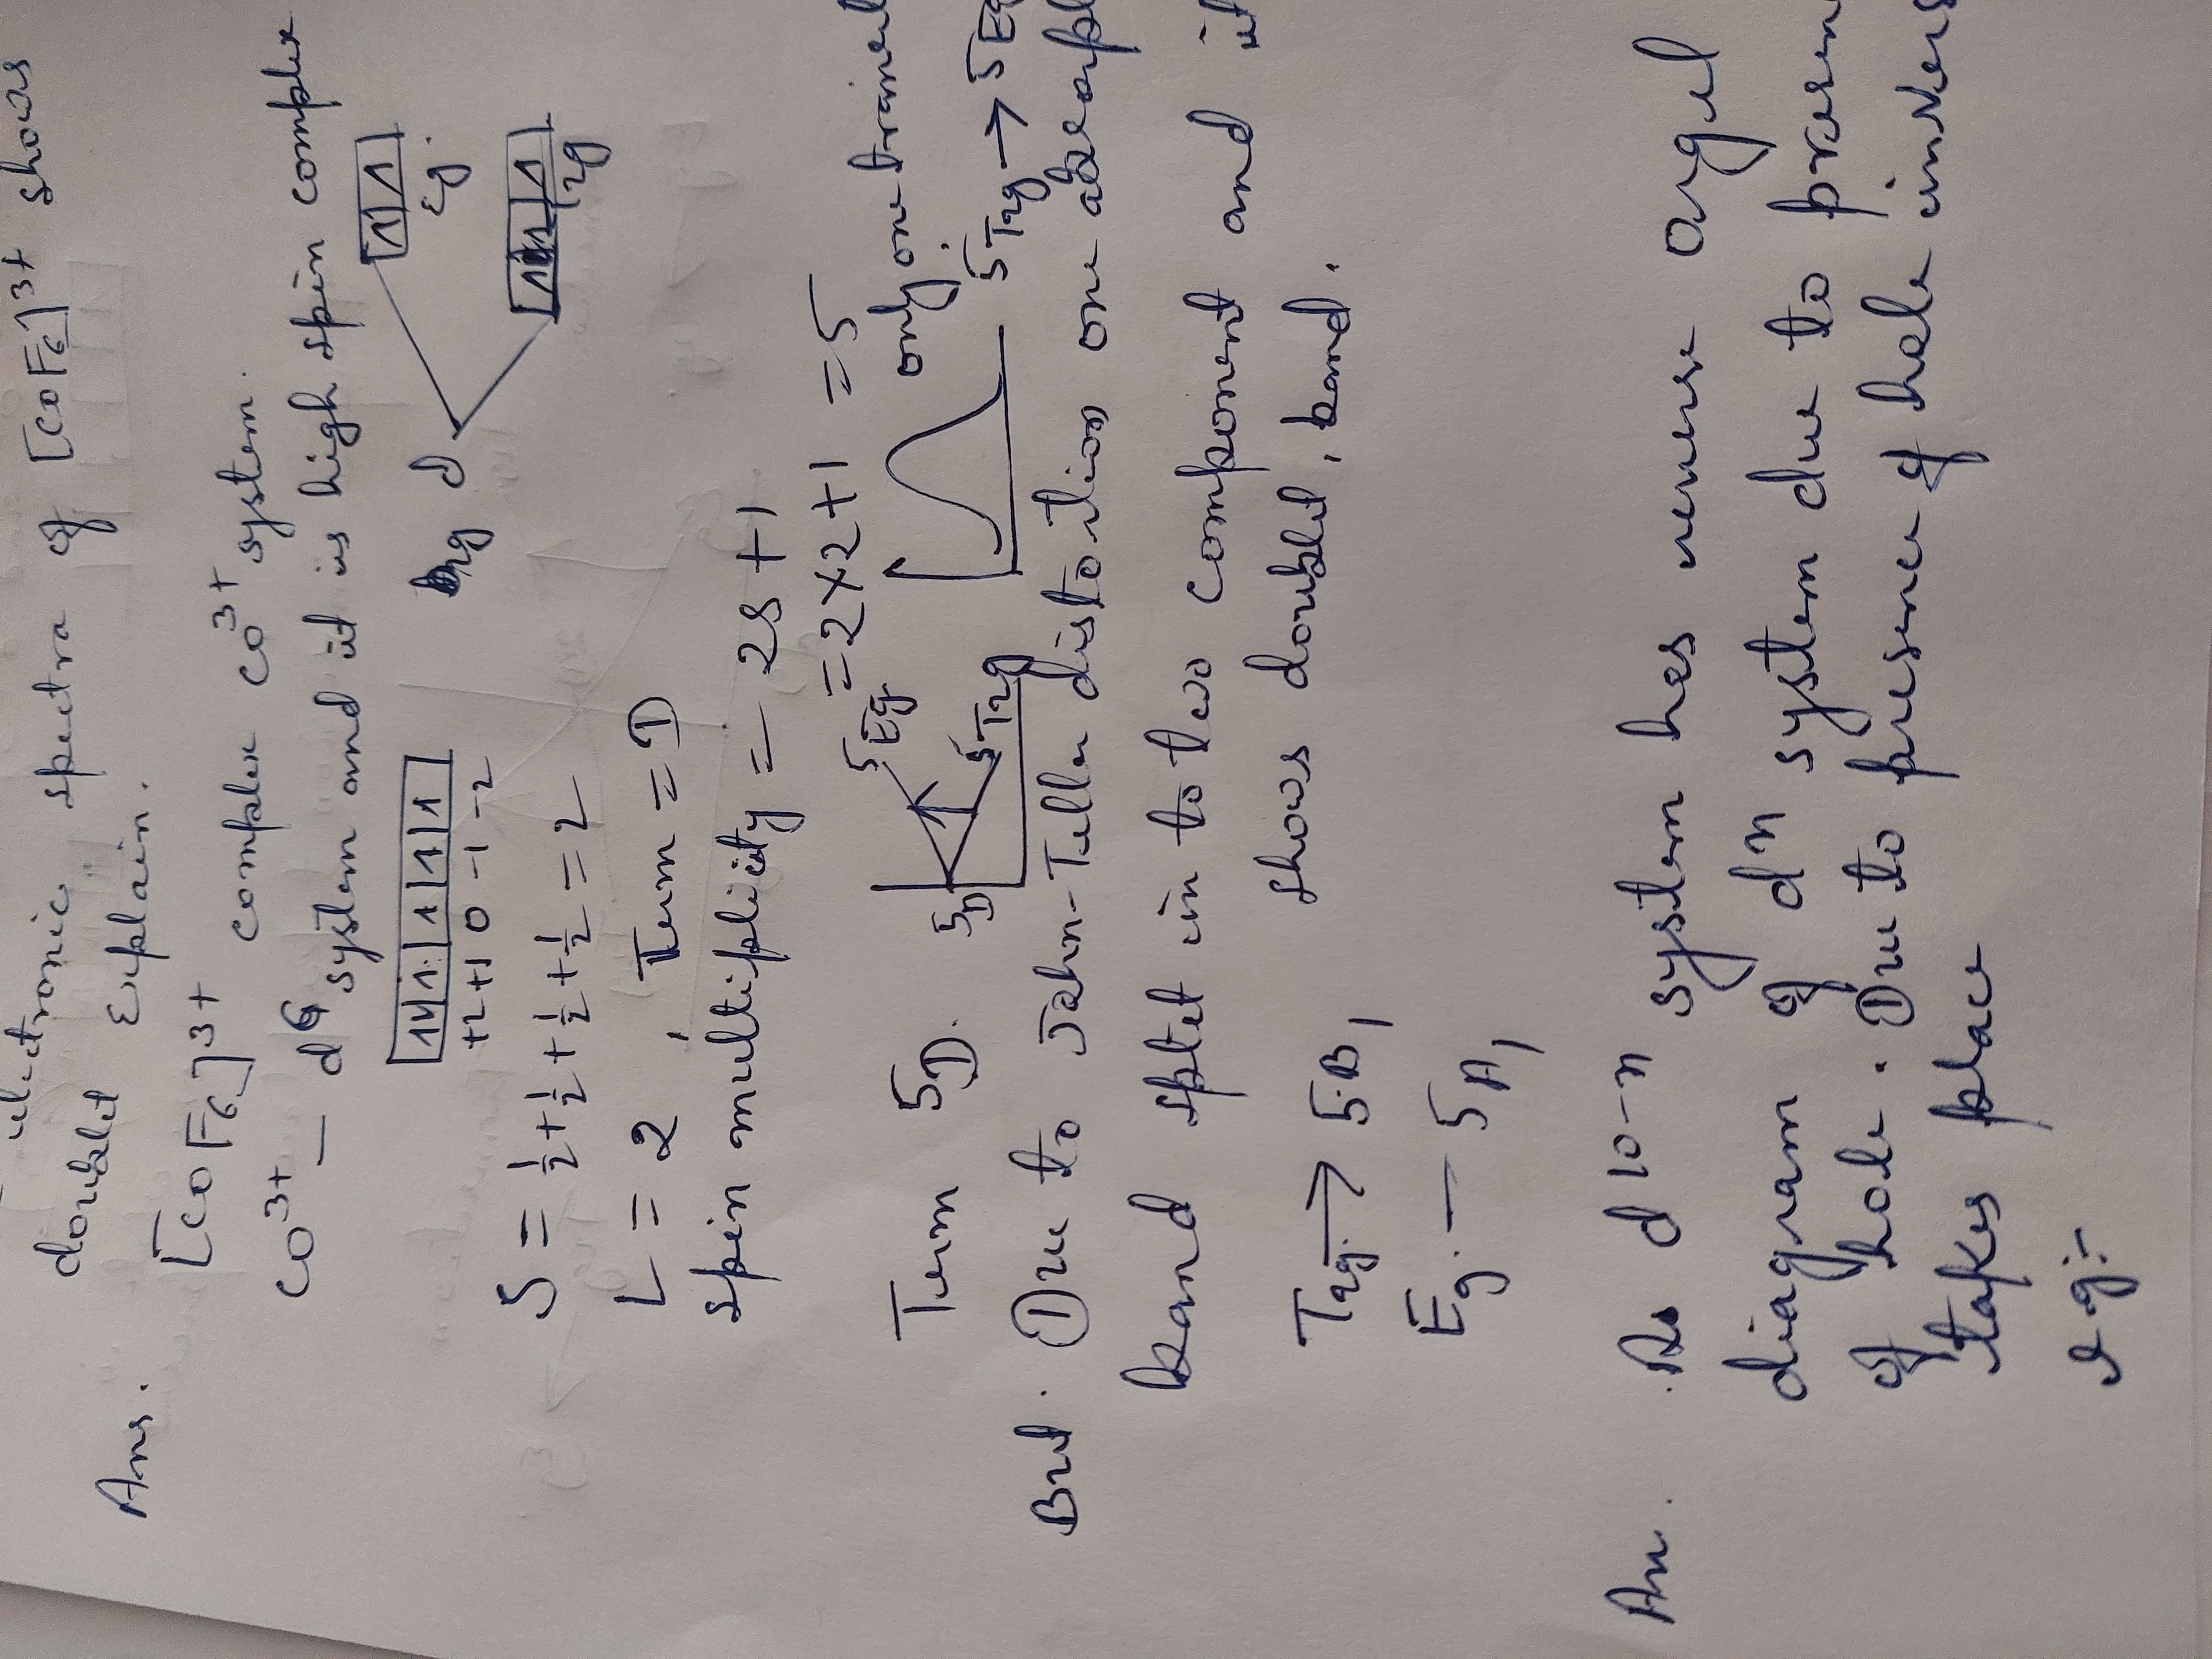 electronic spectra of [COF6]3+ shows
doublet Explain.
Ans.
[COF6]3+ complex CO3+ system.
CO3+ — d6 system and it is high spin complex
1↓ 1 1 1 1
+2 +1 0 -1 -2
d
Eg.
S = 1/2 + 1/2 + 1/2 + 1/2 = 2
L = 2, Term = D
spin multiplicity = 2S + 1
= 2×2+1 = 5
Term 5D.
5D 5Eg 5T2g
only one
5T2g → 5Eg
But. Due to Jahn-Teller distortion one
band splet in to two component and it
shows doublet, band.
T2g. → 5B1
Eg. — 5A1
An. As d10-n system hes reverse orgel
diagram of dn system due to
of hole. Due to presence of hole
takes place
e.g:-